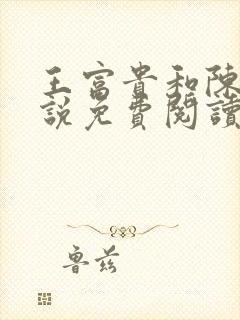 王富貴和陳
說免費閱讀
魯茲